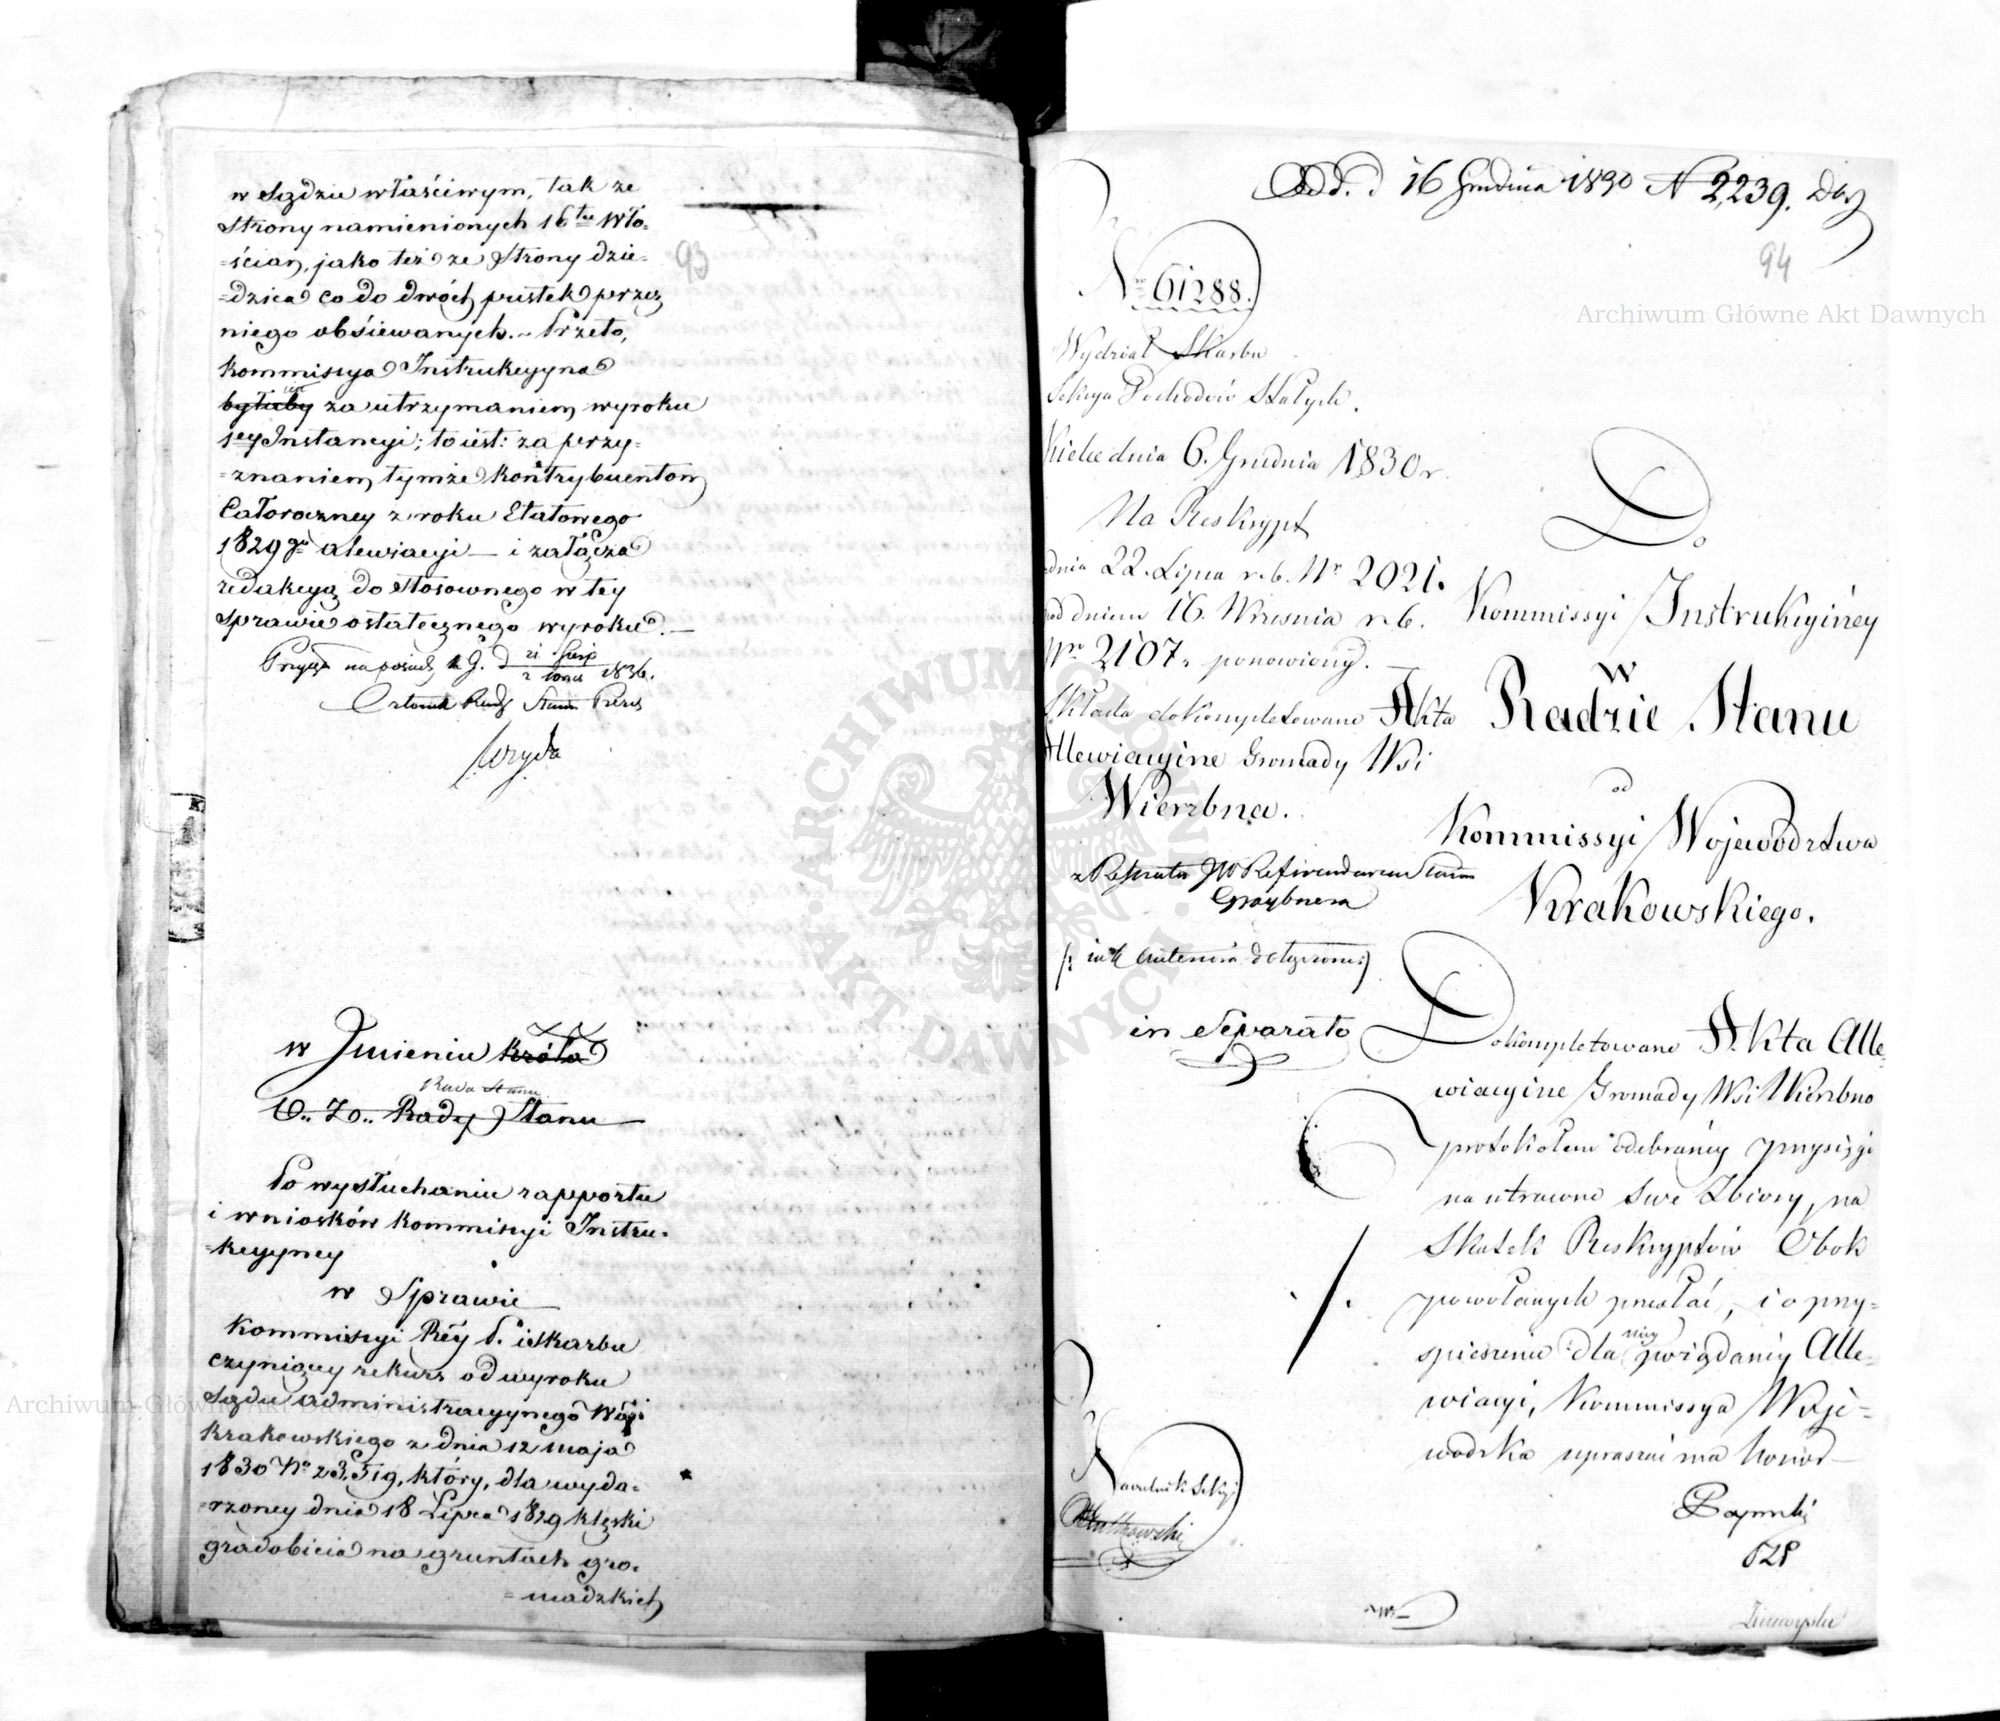 w Sądzie właściwym, tak ze
Strony namienionych 16tu Wło-
=ścian, jako też ze Strony dzie-
=dzica co do dwóch pustek przez
niego obsiewanych. Przeto,
Kommissya Instrukcyyna
byłaby jest za utrzymaniem wyroku
1ey Instancyi; to iest: za przy-
=znaniem tymże Kontrybuentom
Całoroczney z roku Etatowego
1829go alewiacyi — i załącza
redakcyą do stosownego w tey
sprawie ostatecznego wyroku. —
na posiedz. 1836.
Członek Rady Stanu
93
w Imieniu Króla
Rada Stanu
O. Zo. Rady Stanu
Po wysłuchaniu rapportu
i wniosków Kommissyi Instru-
=kcyyney
w Sprawie
Kommissyi Rey P. i Skarbu
czyniącey rekurs od wyroku
Sądu administracyynego Woj:
Krakowskiego z dnia 12 maja
1830 No 23,519, który, dla wyda-
=rzoney dnia 18 Lipca 1829 klęski
gradobicia na gruntach gro-
=madzkich
Odd. d 16 Grudnia 1830 N 2,239.
94
Archiwum Główne Akt Dawnych
Nr 61288.
Wydział Skarbu
Sekcya Dochodów Stałych.
Kielce dnia 6. Grudnia 1830 r.
Na Reskrypt
dnia 22. Lipca r. b. Nr 2021.
pod dniem 16. Września r. b.
Nr 2107. ponowiony. —
Składa dokompletowane Akta
Allewiacyine Gromady Wsi
Wierzbna.
z Referatu JW Referendarza Stanu
Grzybnera
in Separato
Do
Kommissyi Instrukcyiney
w
Radzie Stanu
od
Kommissyi Wojewodztwa
Krakowskiego.
Dokompletowane Akta Alle-
wiacyine Gromady Wsi Wierzbno
protokołem odebraney przysięgi
na utracone swe Zbiory, na
Skutek Reskryptów Obok
powołanych przesłać, i o przy-
spieszenie dla niey żądaney Alle-
wiacyi, Kommissya Woje-
wodzka upraszać ma honor —
Naczelnik Sekcyi
Archiwum Główne Akt Dawnych
ARCHIWUM GŁÓWNE · AKT DAWNYCH ·